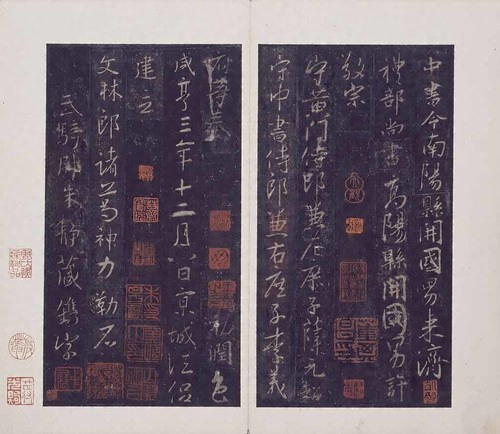 中書令南陽縣開國男來濟
禮部尚書高陽縣開國男許
敬宗
守黃門侍郎兼左庶子薛元超
守中書侍郎兼右庶子李義
府等奉 潤色
咸亨三年十二月八日京城法侶
建立
文林郎諸葛神力勒石
武騎尉朱靜藏鐫字